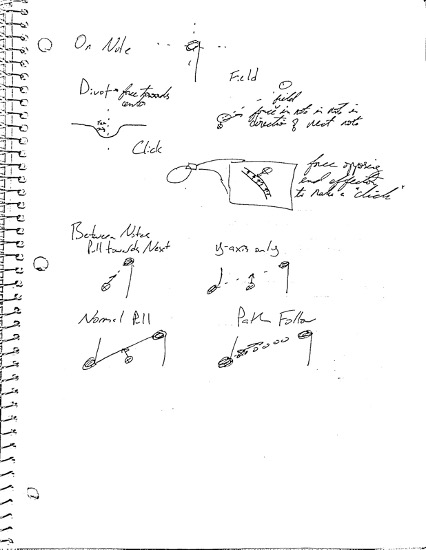 On Note
Field
Divot - force towards
center
field
force in note is not in
direction of next note
Click
force opposing
end effector
to make a "click"
Between Notes
Pull towards Next
y-axis only
Normal Pull
Path Follow